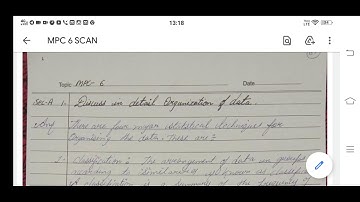 13:18
MPC 6 SCAN
Topic MPC- 6 Date
Sec-A 1. Discuss in detail Organisation of data.
Ans There are four major statistical techniques for
Organising the data. These are:
1- Classification: The arrangement of data in groups
according to similarities is known as classific
A classification is a summary of the frequency of